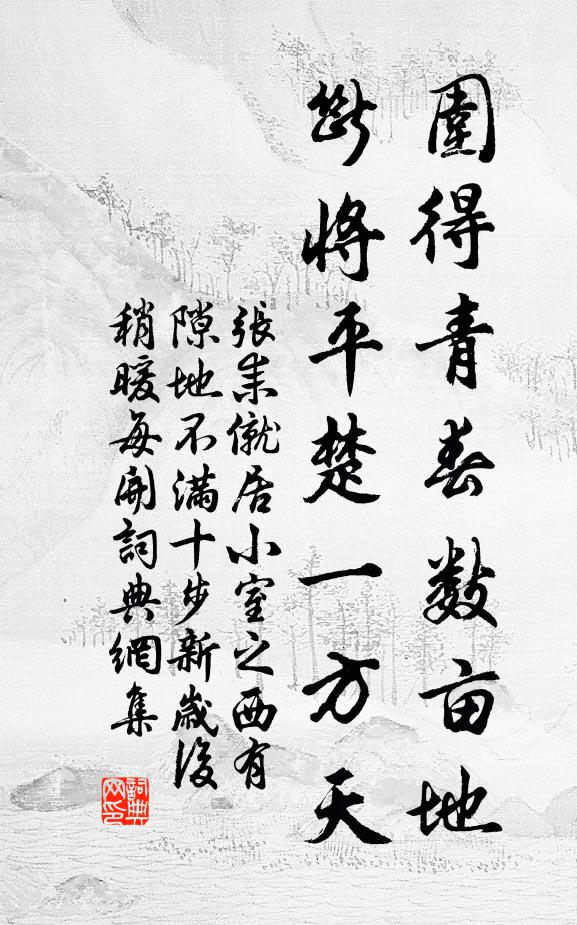 圍得青春數亩地
斷將平楚一方天
張耒僦居小室之西有
隙地不滿十步新歲後
稍暖每開詞典網集
詞典
网印